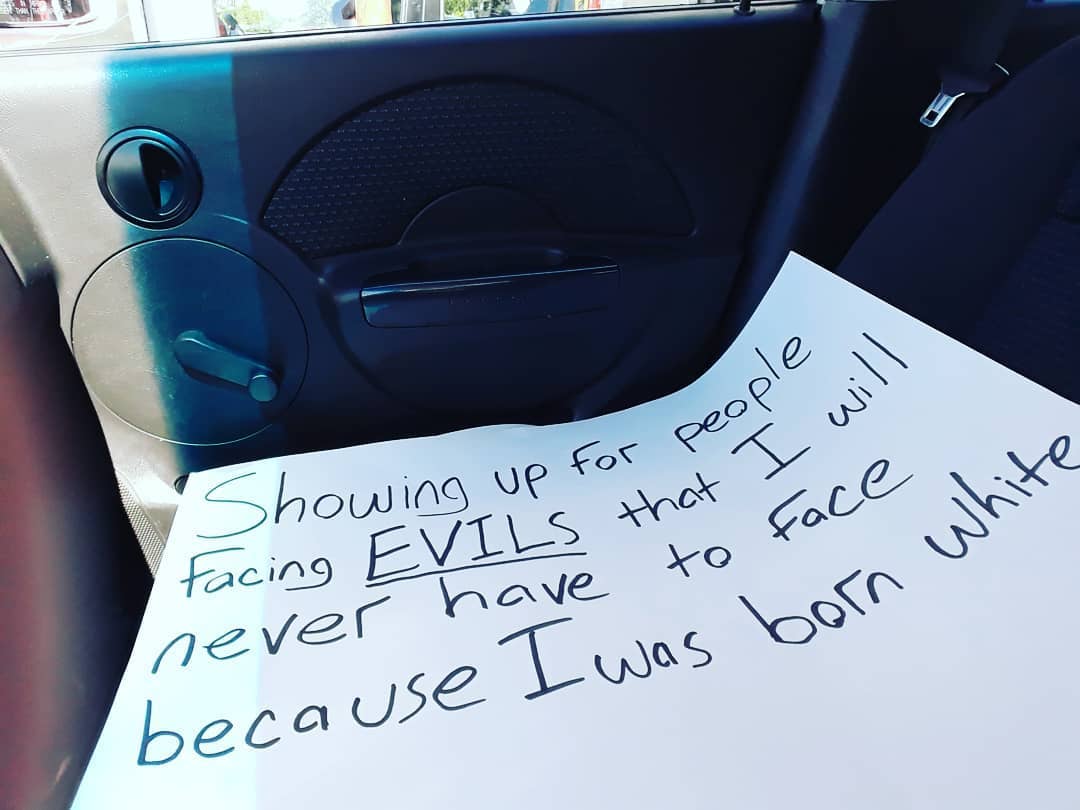 Showing up for people
facing EVILS that I will
never have to face
because I was born white